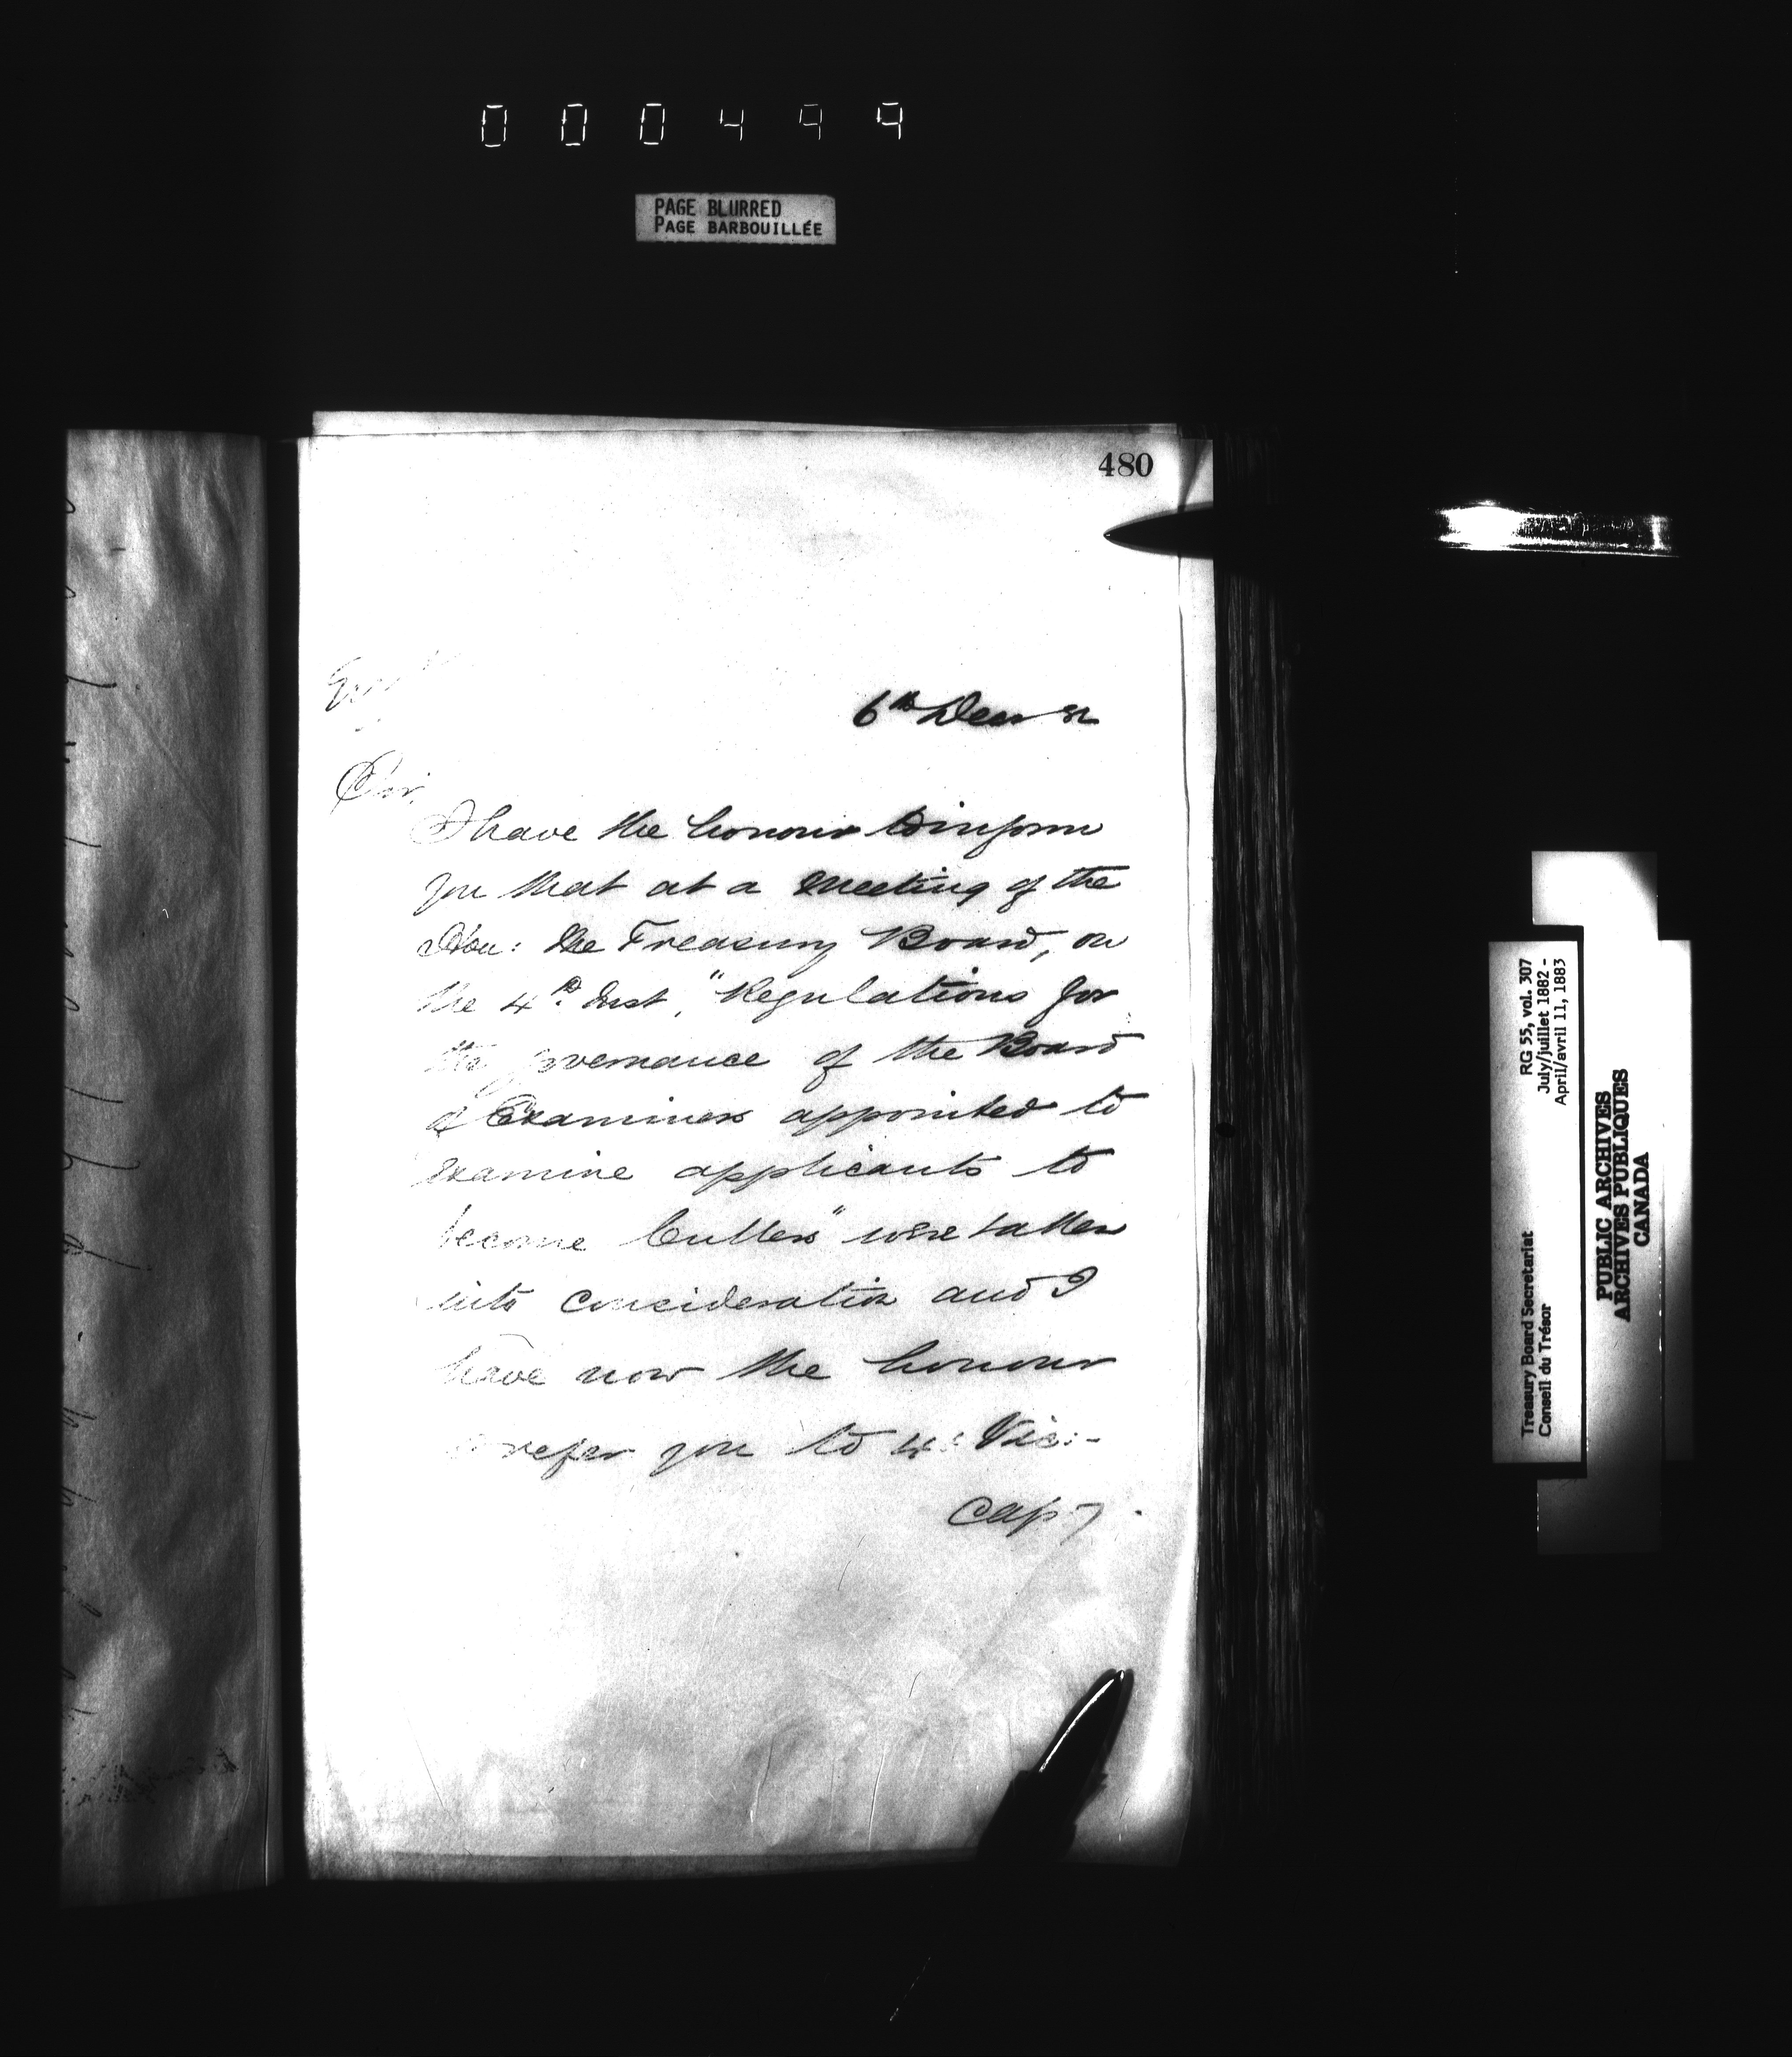 000499
PAGE BLURRED
PAGE BARBOUILLÉE
480
6th Decr 82
Sir,
I have the honour to inform
you that at a meeting of the
Hon: the Treasury Board, on
the 4th Inst, "Regulations for
the governance of the Board
of Examiners appointed to
examine applicants to
become Cullers" were taken
into consideration and I
have now the honour
to refer you to Vic:-
cap 7.
RG 55, vol. 307
July/juillet 1882 -
April/avril 11, 1883
Treasury Board Secretariat
Conseil du Trésor
PUBLIC ARCHIVES
ARCHIVES PUBLIQUES
CANADA